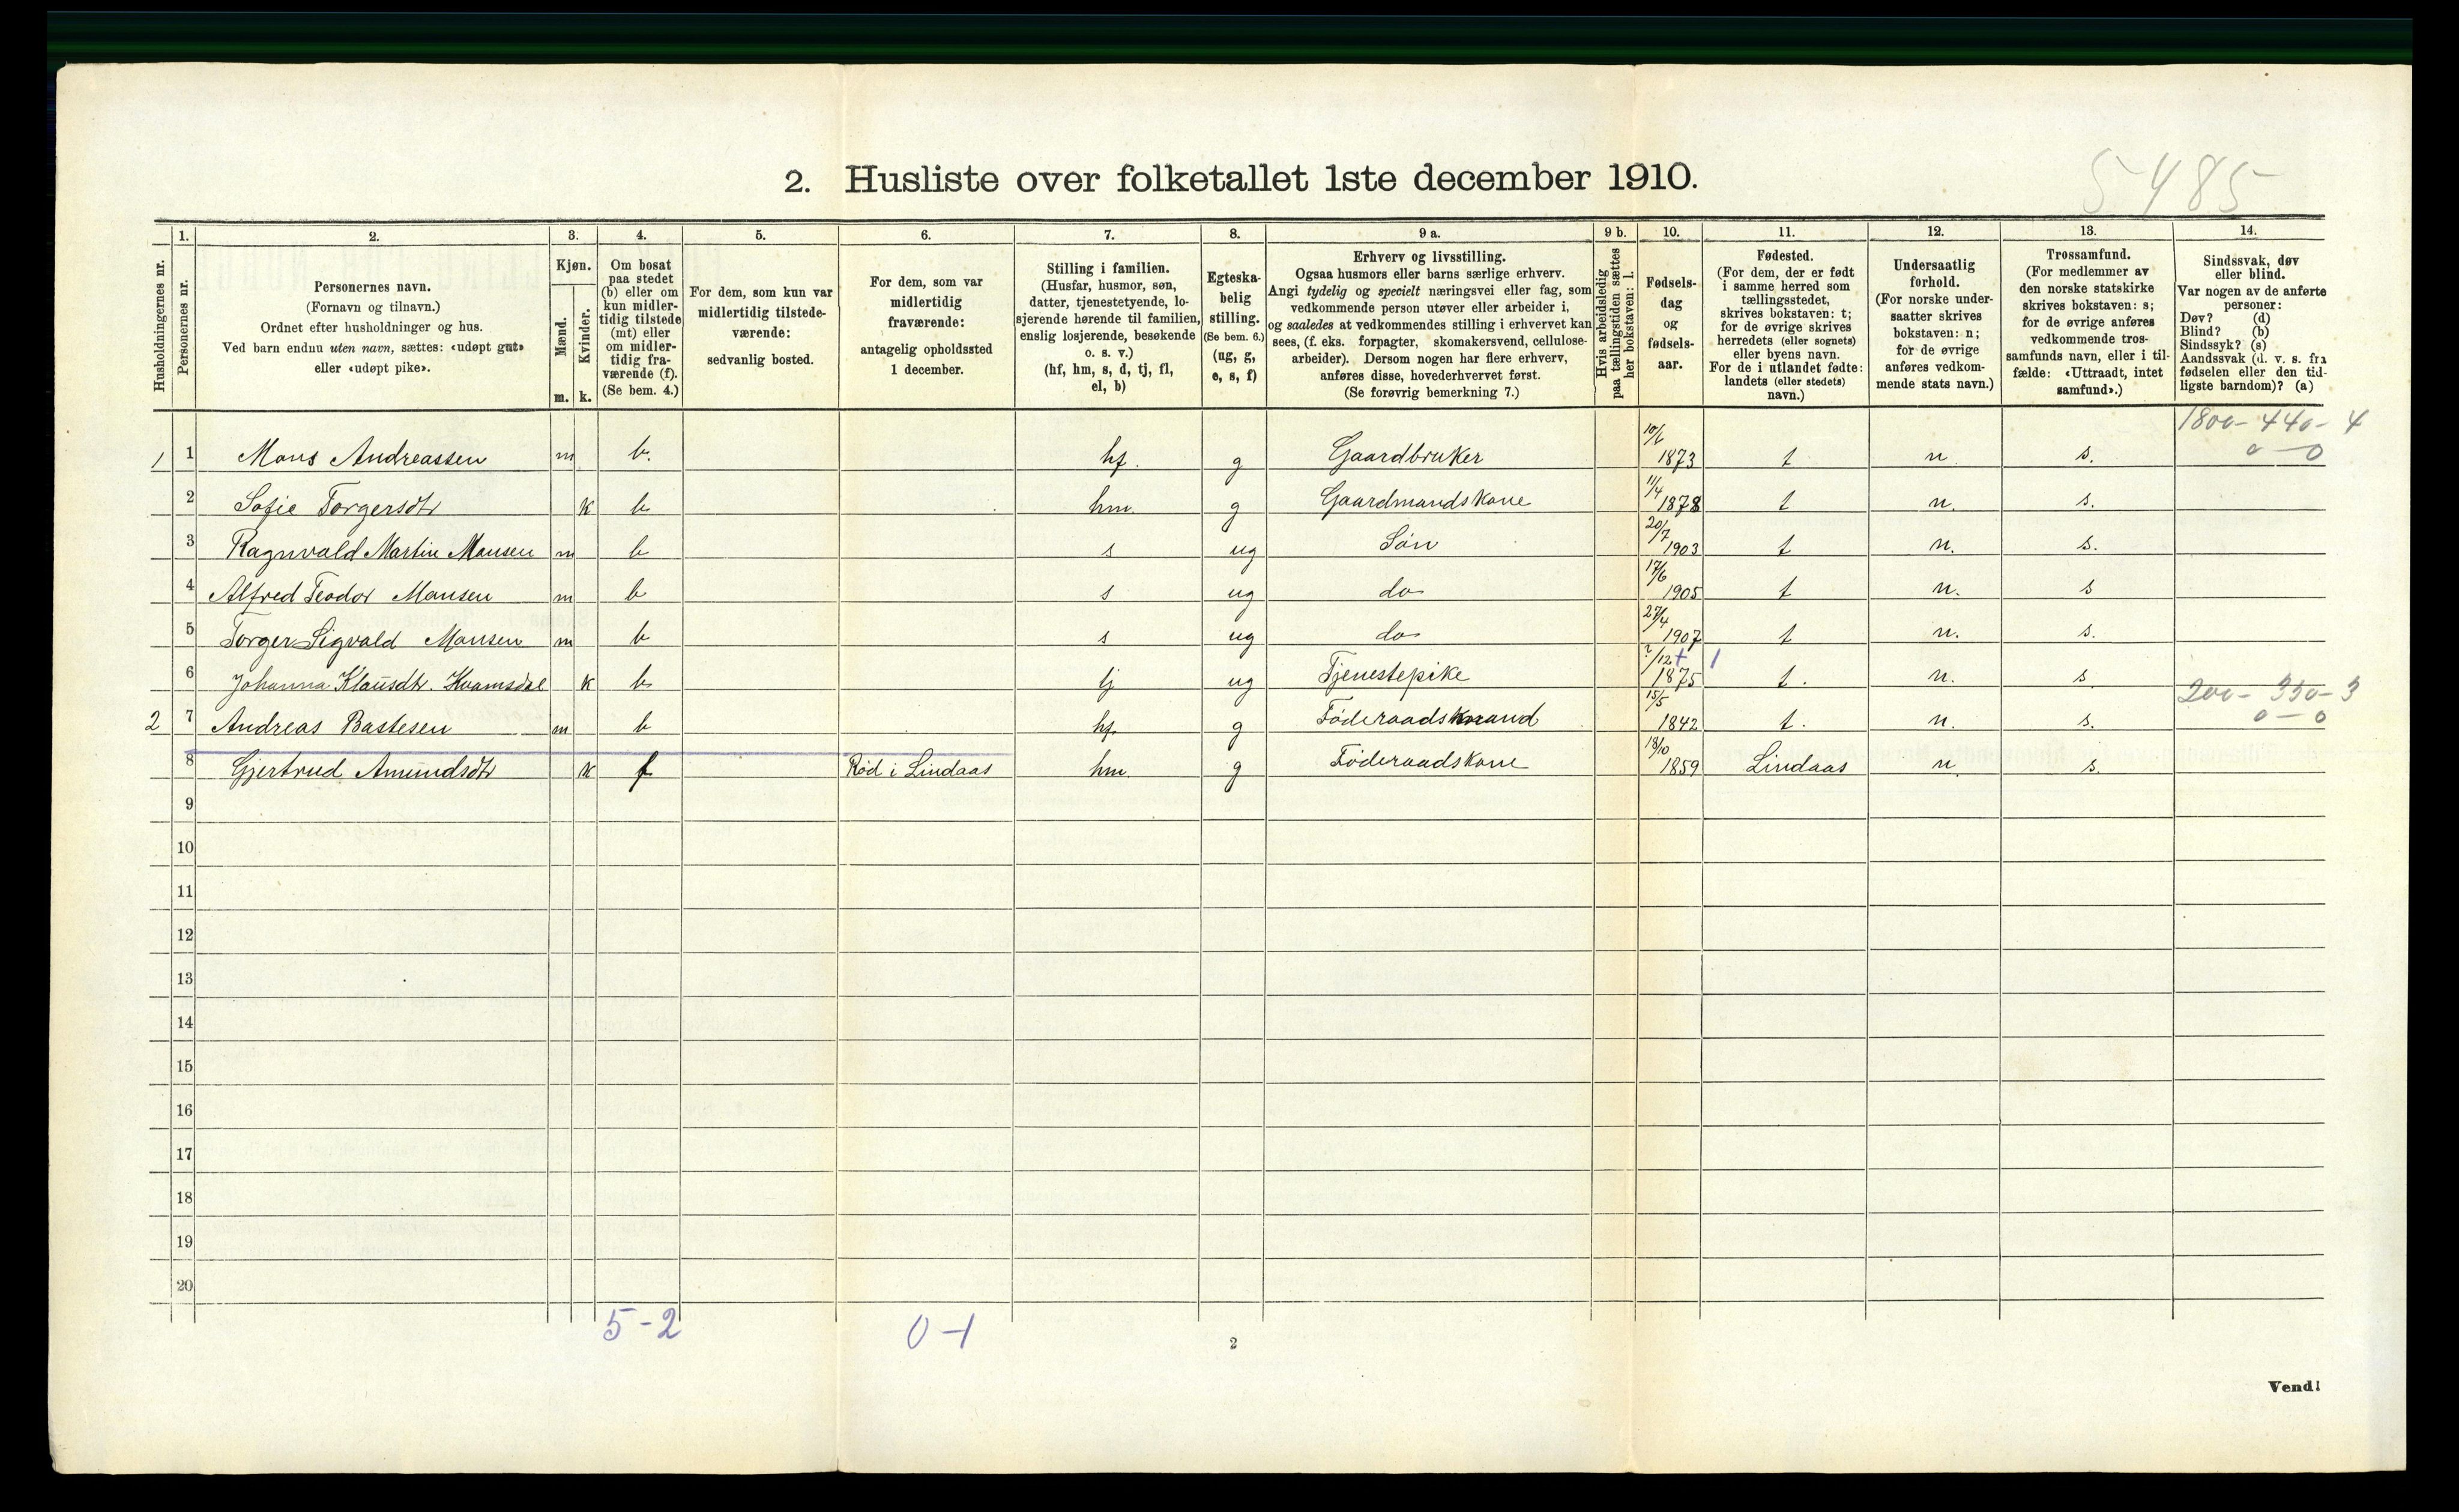 2. Husliste over folketallet 1ste december 1910.
5485
Husholdningernes nr.
1.
Personernes nr.
2.
Personernes navn.
(Fornavn og tilnavn.)
Ordnet efter husholdninger og hus.
Ved barn endnu uten navn, sættes: «udøpt gut»
eller «udøpt pike».
3.
Kjøn.
Mænd.
Kvinder.
m. k.
4.
Om bosat
paa stedet
(b) eller om
kun midler-
tidig tilstede
(mt) eller
om midler-
tidig fra-
værende (f).
(Se bem. 4.)
5.
For dem, som kun var
midlertidig tilstede-
værende:
sedvanlig bosted.
6.
For dem, som var
midlertidig
fraværende:
antagelig opholdssted
1 december.
7.
Stilling i familien.
(Husfar, husmor, søn,
datter, tjenestetyende, lo-
sjerende hørende til familien,
enslig losjerende, besøkende
o. s. v.)
(hf, hm, s, d, tj, fl,
el, b)
8.
Egteska-
belig
stilling.
(Se bem. 6.)
(ug, g,
e, s, f)
9 a.
Erhverv og livsstilling.
Ogsaa husmors eller barns særlige erhverv.
Angi tydelig og specielt næringsvei eller fag, som
vedkommende person utøver eller arbeider i,
og saaledes at vedkommendes stilling i erhvervet kan
sees, (f. eks. forpagter, skomakersvend, cellulose-
arbeider). Dersom nogen har flere erhverv,
anføres disse, hovederhvervet først.
(Se forøvrig bemerkning 7.)
9 b.
Hvis arbeidsledig
paa tællingstiden sættes
her bokstaven: l.
10.
Fødsels-
dag
og
fødsels-
aar.
11.
Fødested.
(For dem, der er født
i samme herred som
tællingsstedet,
skrives bokstaven: t;
for de øvrige skrives
herredets (eller sognets)
eller byens navn.
For de i utlandet fødte:
landets (eller stedets)
navn.)
12.
Undersaatlig
forhold.
(For norske under-
saatter skrives
bokstaven: n;
for de øvrige
anføres vedkom-
mende stats navn.)
13.
Trossamfund.
(For medlemmer av
den norske statskirke
skrives bokstaven: s;
for de øvrige anføres
vedkommende tros-
samfunds navn, eller i til-
fælde: «Uttraadt, intet
samfund».)
14.
Sindssvak, døv
eller blind.
Var nogen av de anførte
personer:
Døv? (d)
Blind? (b)
Sindssyk? (s)
Aandssvak (d. v. s. fra
fødselen eller den tid-
ligste barndom)? (a)
1800-440-4
0-0
1 1 Mons Andreassen m b. hf. g Gaardbruker 10/6 1873 t n. s.
2 Sofie Torgersdtr k b hm. g Gaardmandskone 11/4 1878 t n. s.
3 Ragnvald Martin Monsen m b s ug Søn 20/7 1903 t n. s.
4 Alfred Teodor Monsen m b s ug do 17/6 1905 t n. s
5 Torger Sigvald Monsen m b s ug do 27/4 1907 t n. s.
6 Johanna Klausdtr. Kvamsdal k b tj ug Tjenestepike ?/12 + 1 1875 t. n. s
200-350-3
0-0
2 7 Andreas Bastesen m b hf. g Føderaadsmand 15/5 1842 t. n. s.
8 Gjertrud Amundsdtr k f Rød i Lindaas hm. g Føderaadskone 18/10 1859 Lindaas n. s.
9
10
11
12
13
14
15
16
17
18
19
20
5-2
0-1
2
Vend!